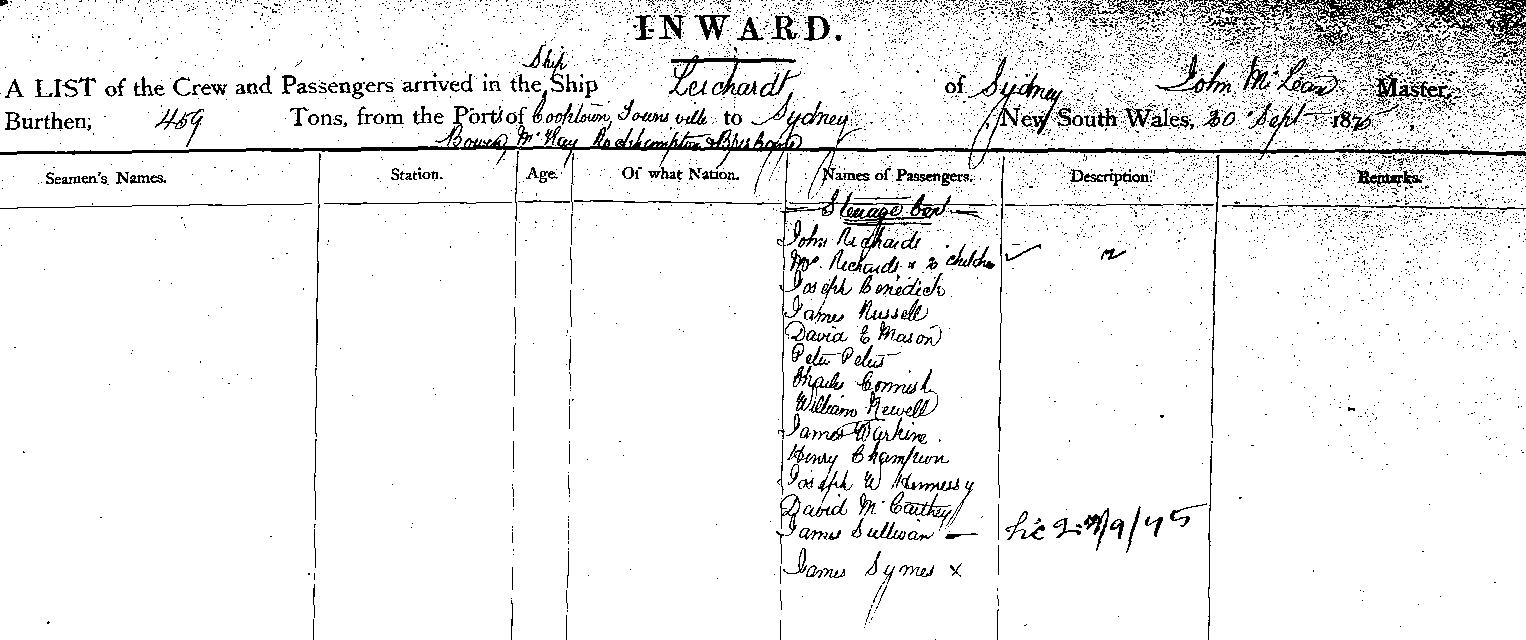 INWARD.
Ship
A LIST of the Crew and Passengers arrived in the Ship Leichardt of Sydney John McLean Master,
Burthen; 459 Tons, from the Ports of Cooktown, Townsville to Sydney New South Wales, 30 Sept 1875
Bowen McKay Rockhampton & Brisbane
Seamen's Names. Station. Age. Of what Nation. Names of Passengers. Description. Remarks.
Steerage
John Richards
Mrs. Richards & 2 children 2
Joseph Benedick
James Russell
David E Mason
Peter Peters
Charles Cornish
William Newell
James
Henry Champion
Joseph W Hennessy
David McCarthey
James Sullivan — /9/75
James Symes x